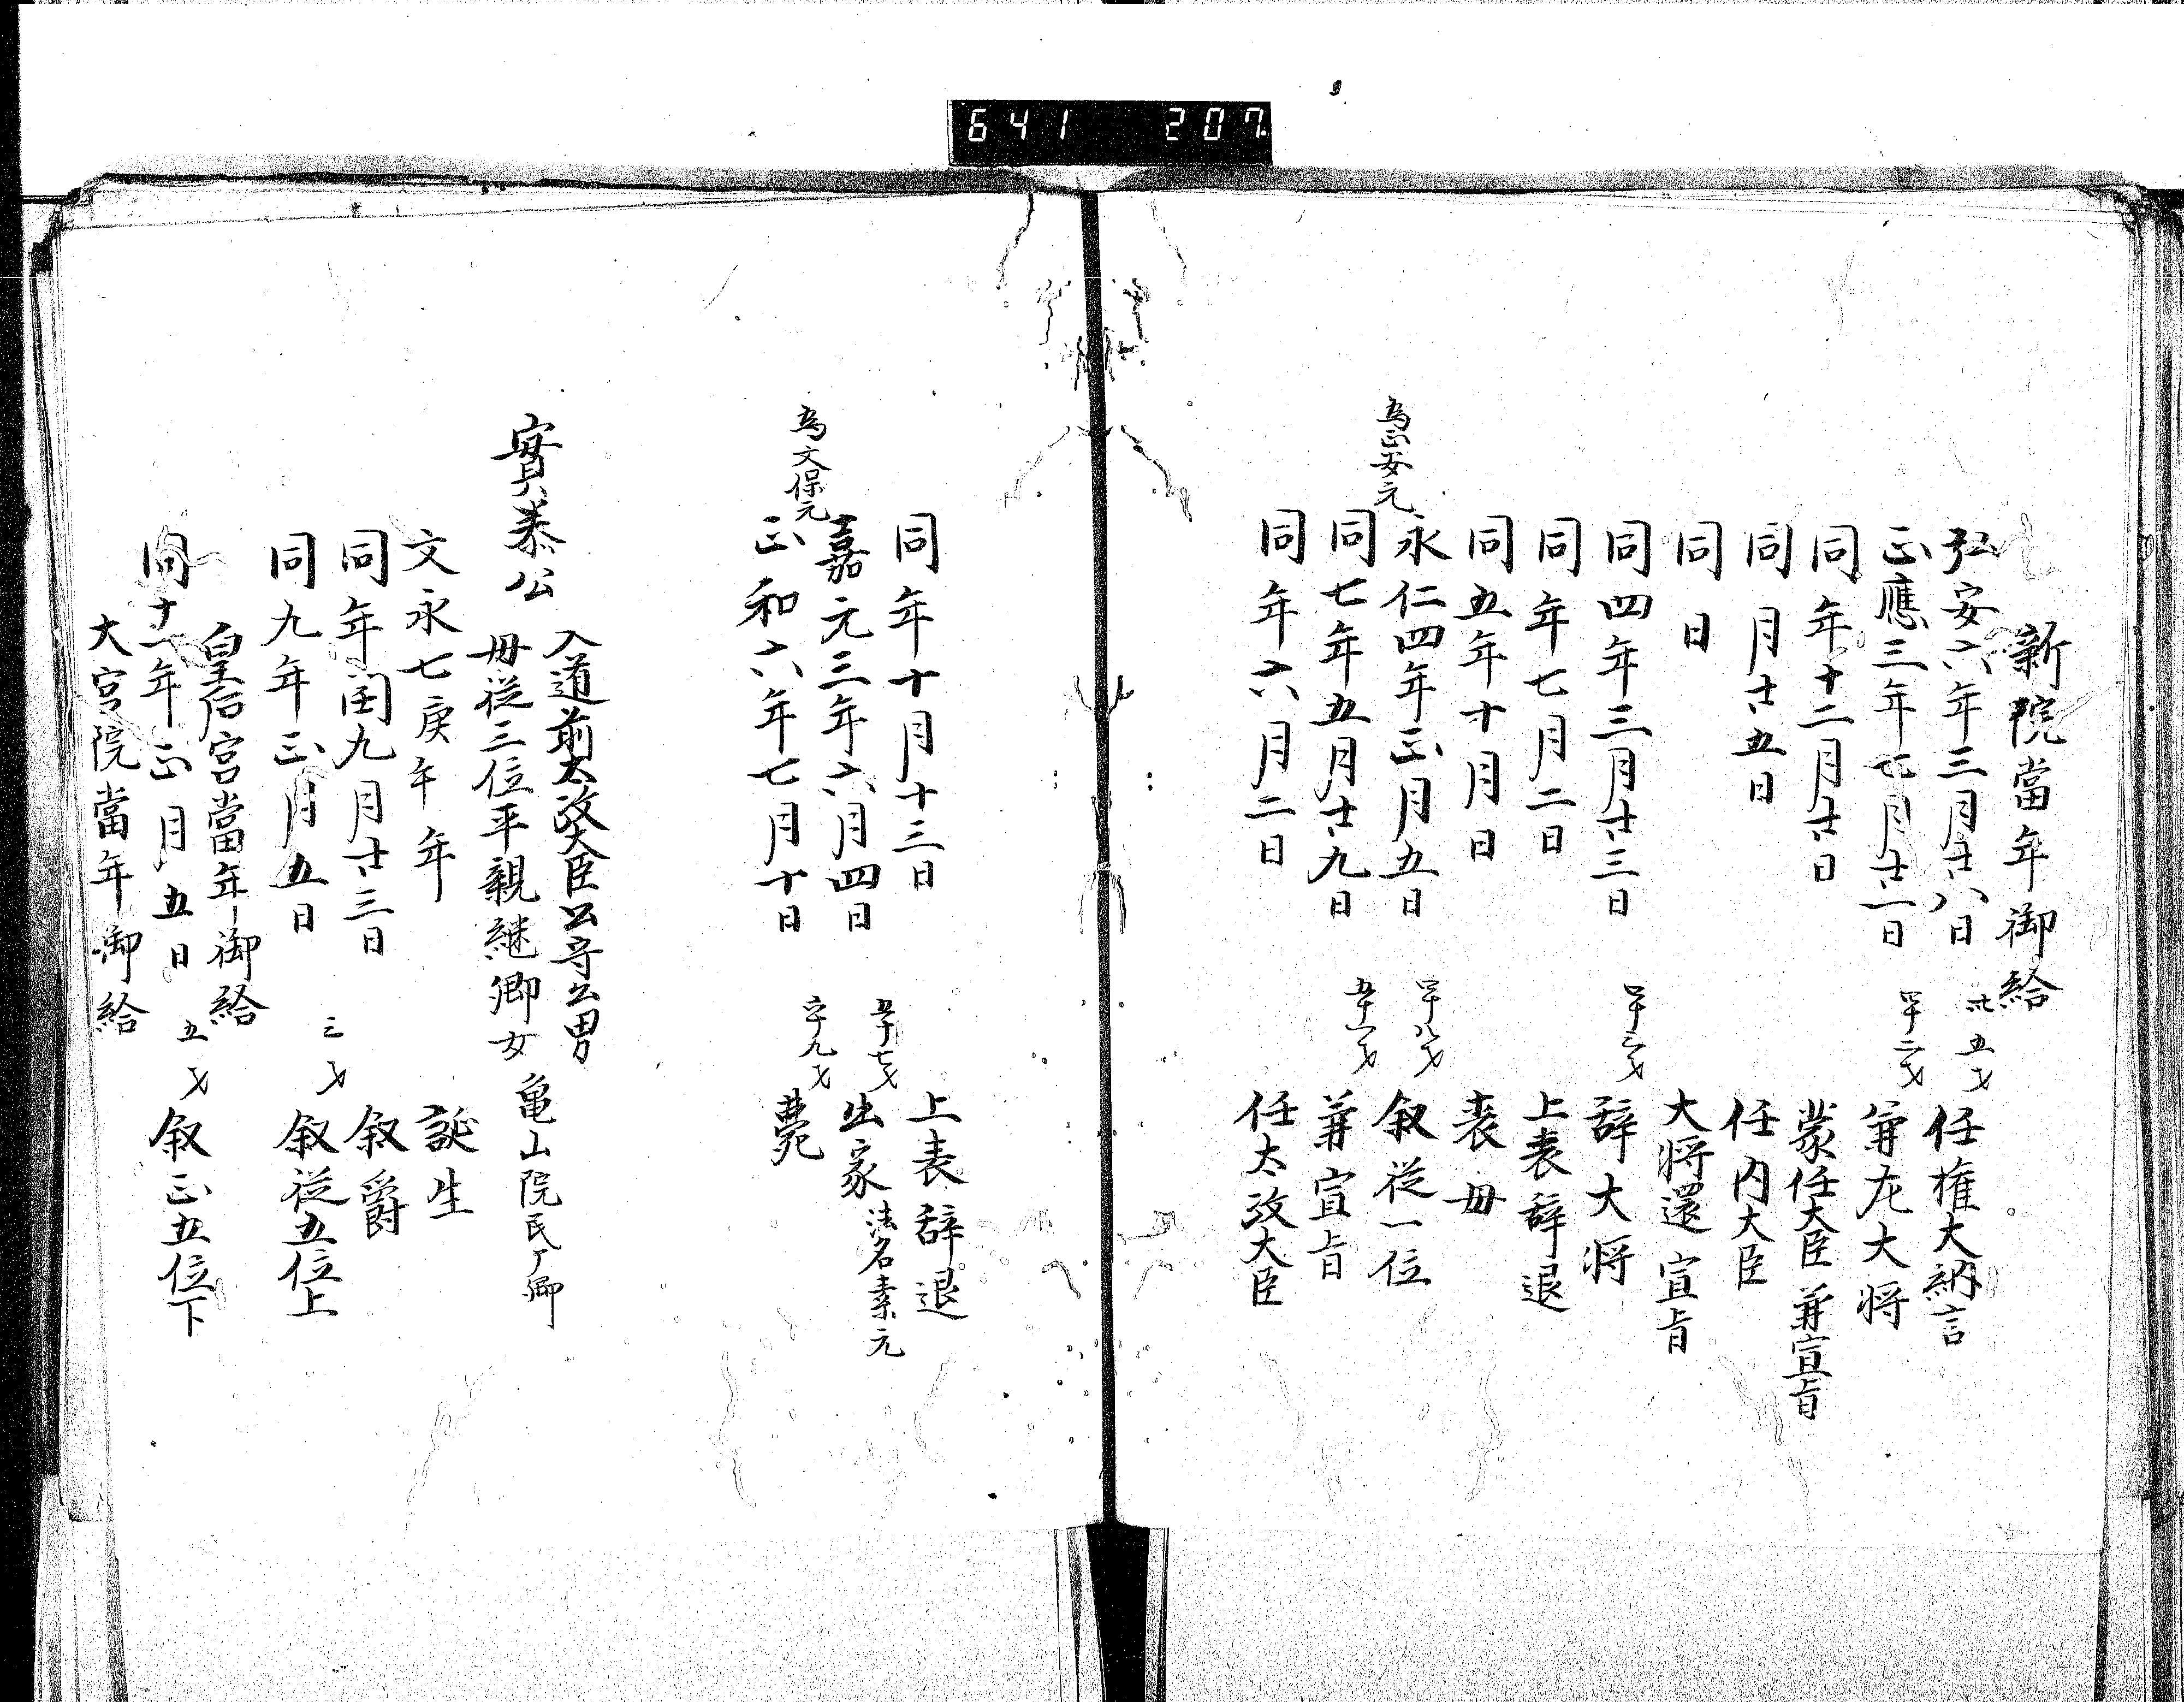 641 207
新院當年御給
弘安六年三月廿八日 卅五才 任権大納言
正應三年七月廿一日 四十二才 兼左大将
同年十二月廿日 蒙任大臣兼宣旨
同月廿五日 任内大臣
同日 大将還宣旨
同四年三月廿三日 四十三才 辞大将
同年七月二日 上表辞退
同五年十月日 喪母
永仁四年正月五日 四十八才 叙従一位
為正安元
同七年五月廿九日 五十一才 兼宣旨
同年六月二日 任太政大臣
同年十月十三日 上表辞退
嘉元三年六月四日 五十七才 出家法名素元
為文保元
正和六年七月十日 六十九才 薨
實泰公
入道前太政大臣公守公男
母従三位平親継卿女 亀山院民ア卿
文永七庚午年 誕生
同年閏九月廿三日 叙爵
同九年正月五日 三才 叙従五位上
皇后宮當年御給
同十一年正月五日 五才 叙正五位下
大宮院當年御給